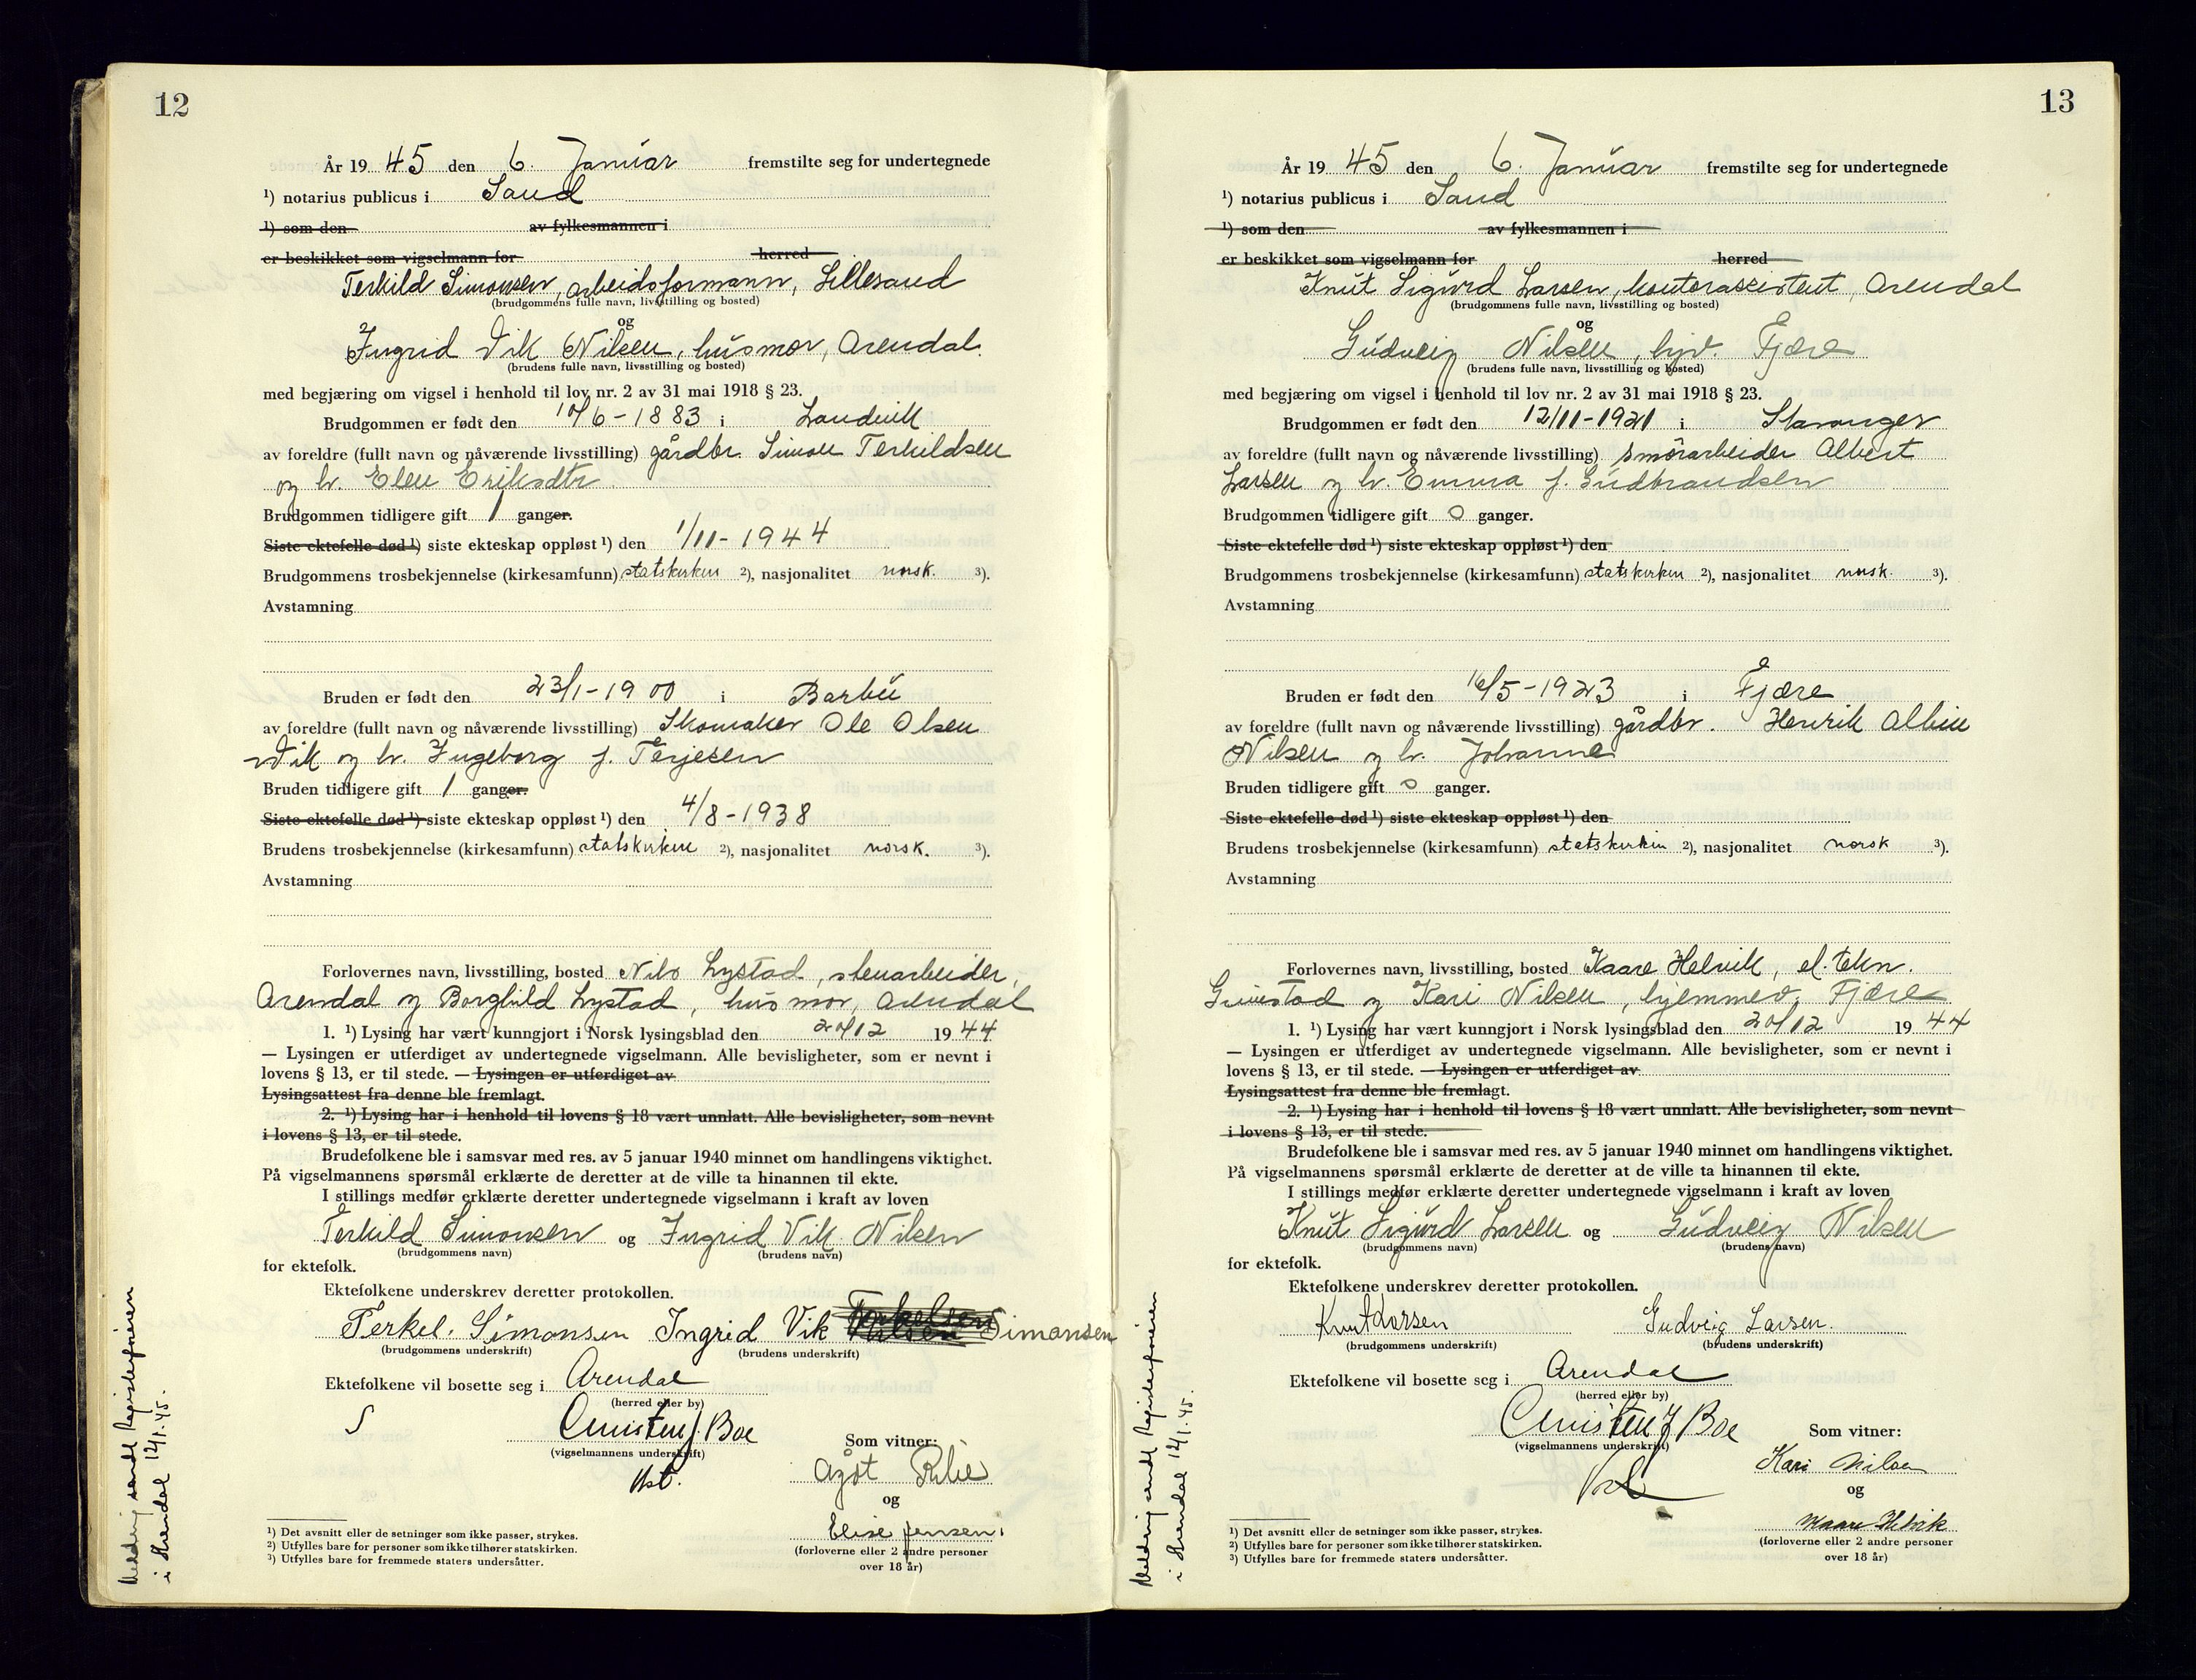 12
År 1945 den 6. Januar fremstilte seg for undertegnede
¹) notarius publicus i Sand
¹) som den av fylkesmannen i
er beskikket som vigselmann for herred
Terkild Simonsen, arbeidsformann, Lillesand
(brudgommens fulle navn, livsstilling og bosted)
og
Ingrid Vik Nilsen, husmor, Arendal.
(brudens fulle navn, livsstilling og bosted)
med begjæring om vigsel i henhold til lov nr. 2 av 31 mai 1918 § 23.
Brudgommen er født den 10/6-1883 i Landvik
av foreldre (fullt navn og nåværende livsstilling) gårdbr. Simon Terkildsen
og h. Elen Eriksdtr
Brudgommen tidligere gift 1 ganger.
Siste ektefelle død ¹) siste ekteskap oppløst ¹) den 1/11-1944
Brudgommens trosbekjennelse (kirkesamfunn) statskirken ²), nasjonalitet norsk. ³).
Avstamning
Bruden er født den 23/1-1900 i Barbu
av foreldre (fullt navn og nåværende livsstilling) Skomaker Ole Olsen
Vik og h. Ingeborg f. Terjesen
Bruden tidligere gift 1 ganger.
Siste ektefelle død ¹) siste ekteskap oppløst ¹) den 4/8-1938
Brudens trosbekjennelse (kirkesamfunn) statskirken ²), nasjonalitet norsk. ³).
Avstamning
Forlovernes navn, livsstilling, bosted Nils Lystad, stenarbeider,
Arendal og Borghild Lystad, husmor, Arendal
1. ¹) Lysing har vært kunngjort i Norsk lysingsblad den 20/12 1944
— Lysingen er utferdiget av undertegnede vigselmann. Alle bevisligheter, som er nevnt i
lovens § 13, er til stede. — Lysingen er utferdiget av
Lysingsattest fra denne ble fremlagt.
2. ¹) Lysing har i henhold til lovens § 18 vært unnlatt. Alle bevisligheter, som nevnt
i lovens § 13, er til stede.
Brudefolkene ble i samsvar med res. av 5 januar 1940 minnet om handlingens viktighet.
På vigselmannens spørsmål erklærte de deretter at de ville ta hinannen til ekte.
I stillings medfør erklærte deretter undertegnede vigselmann i kraft av loven
Terkild Simonsen og Ingrid Vik Nilsen
(brudgommens navn) (brudens navn)
for ektefolk.
Ektefolkene underskrev deretter protokollen.
Terkel. Simonsen Ingrid Vik Simonsen
(brudgommens underskrift) (brudens underskrift)
Ektefolkene vil bosette seg i Arendal
(herred eller by)
S Christen J. Boe
(vigselmannens underskrift)
Som vitner:
Ågot
og
Elise Jensen
(forloverne eller 2 andre personer
over 18 år)
¹) Det avsnitt eller de setninger som ikke passer, strykes.
²) Utfylles bare for personer som ikke tilhører statskirken.
³) Utfylles bare for fremmede staters undersåtter.
Melding sendt Registerføreren
i Arendal 12/1.45.
13
År 1945 den 6. Januar fremstilte seg for undertegnede
¹) notarius publicus i Sand
¹) som den av fylkesmannen i
er beskikket som vigselmann for herred
Knut Sigurd Larsen, kontorassistent, Arendal
(brudgommens fulle navn, livsstilling og bosted)
og
Gudveig Nilsen, hjv. Fjære
(brudens fulle navn, livsstilling og bosted)
med begjæring om vigsel i henhold til lov nr. 2 av 31 mai 1918 § 23.
Brudgommen er født den 12/11-1921 i Stavanger
av foreldre (fullt navn og nåværende livsstilling) smörarbeider Albert
Larsen og h. Emma f. Gudbrandsen
Brudgommen tidligere gift 0 ganger.
Siste ektefelle død ¹) siste ekteskap oppløst ¹) den
Brudgommens trosbekjennelse (kirkesamfunn) statskirken ²), nasjonalitet norsk. ³).
Avstamning
Bruden er født den 16/5-1923 i Fjære
av foreldre (fullt navn og nåværende livsstilling) gårdbr. Henrik Albin
Nilsen og h. Johanne
Bruden tidligere gift 0 ganger.
Siste ektefelle død ¹) siste ekteskap oppløst ¹) den
Brudens trosbekjennelse (kirkesamfunn) statskirken ²), nasjonalitet norsk ³).
Avstamning
Forlovernes navn, livsstilling, bosted Kaare Helvik, el. tekn.
Grimstad og Kari Nilsen, hjemmev. Fjære
1. ¹) Lysing har vært kunngjort i Norsk lysingsblad den 20/12 1944
— Lysingen er utferdiget av undertegnede vigselmann. Alle bevisligheter, som er nevnt i
lovens § 13, er til stede. — Lysingen er utferdiget av
Lysingsattest fra denne ble fremlagt.
2. ¹) Lysing har i henhold til lovens § 18 vært unnlatt. Alle bevisligheter, som nevnt
i lovens § 13, er til stede.
Brudefolkene ble i samsvar med res. av 5 januar 1940 minnet om handlingens viktighet.
På vigselmannens spørsmål erklærte de deretter at de ville ta hinannen til ekte.
I stillings medfør erklærte deretter undertegnede vigselmann i kraft av loven
Knut Sigurd Larsen og Gudveig Nilsen
(brudgommens navn) (brudens navn)
for ektefolk.
Ektefolkene underskrev deretter protokollen.
Knut Larsen Gudveig Larsen.
(brudgommens underskrift) (brudens underskrift)
Ektefolkene vil bosette seg i Arendal
(herred eller by)
Christen J Boe
(vigselmannens underskrift)
Som vitner:
Kari Nilsen
og
Kaare Helvik
(forloverne eller 2 andre personer
over 18 år)
¹) Det avsnitt eller de setninger som ikke passer, strykes.
²) Utfylles bare for personer som ikke tilhører statskirken.
³) Utfylles bare for fremmede staters undersåtter.
Melding sendt Registerføreren
i Arendal 12/1.45.